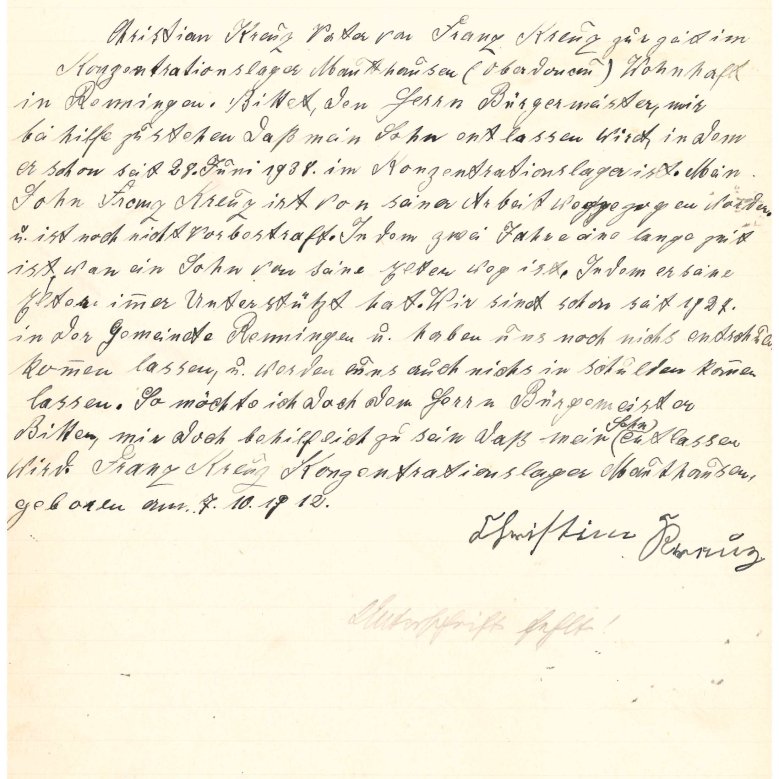 Christian Kreuz Vater von Franz Kreuz zur zeit im
Konzentrationslager Mauthausen (Oberdonau) Wohnhaft
in Renningen. Bittet, den Herrn Bürgermeister, mir
bei hilfe zustehen daß mein Sohn entlassen wird, in dem
er schon seit 28. Juni 1938. im Konzentrationslager ist. Mein
Sohn Franz Kreuz ist von seiner Arbeit weggezogen worden.
u. ist noch nicht Vorbestraft. In dem zwei Jahre eine lange zeit
ist, wan ein Sohn von seine Elten weg ist. Indem er seine
Eltern im̄er Unterstützt hat. Wir sind schon seit 1927.
in der Gemeinde Renningen u. haben uns noch nichs
kom̄en lassen, u. werden uns auch nichs in schulden kom̄en
lassen. So möchte ich doch dem Herrn Bürgemeister
Bitten, mir doch behilflich zu sein daß mein (Sohn) entlassen
wird. Franz Kreuz Konzentrationslager Mauthausen,
geboren am. 7. 10. 1912.
Christian Kreuz
Unterschrift fehlt!